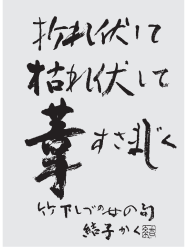 折れ伏して
枯れ伏して
葦すさまじく
竹下しづの女の句
結子かく